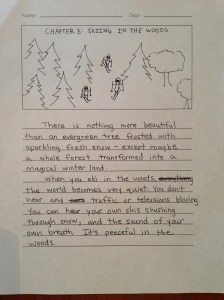 Name Date
CHAPTER 3: SKIING IN THE WOODS
There is nothing more beautiful
than an evergreen tree frosted with
sparkling fresh snow - except maybe
a whole forest transformed into a
magical winter land.
When you ski in the woods,
the world becomes very quiet. You don't
hear any traffic or televisions blaring.
You can hear your own skis shushing
through snow, and the sound of your
own breath. It's peaceful in the
woods.